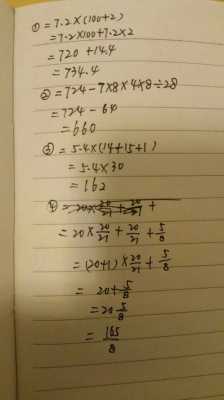 ①=7.2×(100+2)
=7.2×100+7.2×2
=720+14.4
=734.4
②=724-7×8×4×8÷28
=724-64
=660
③=5.4×(14+15+1)
=5.4×30
=162
④
=20×20/21+20/21+5/8
=(20+1)×20/21+5/8
=20+5/8
=20 5/8
=165/8